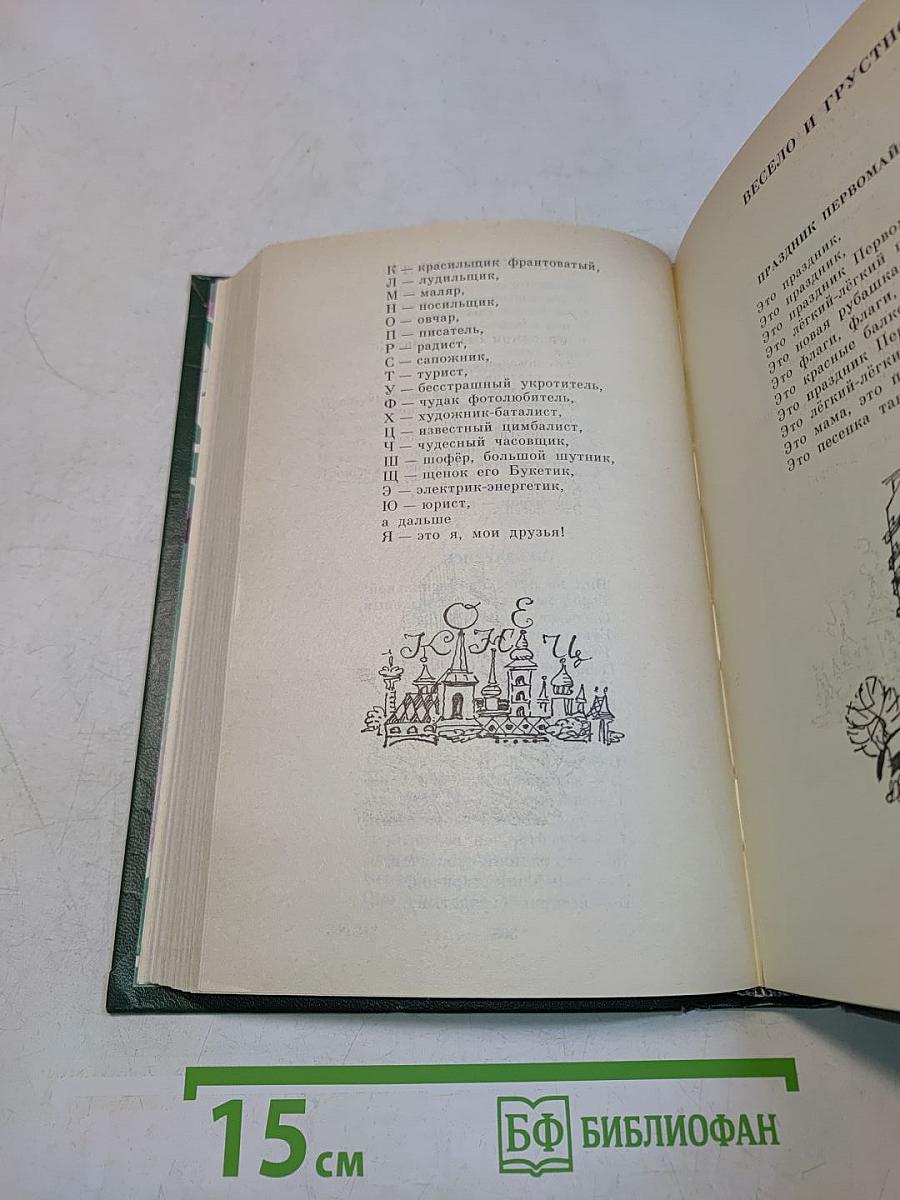 К — красильщик франтоватый,
Л — лудильщик,
М — маляр,
Н — носильщик,
О — овчар,
П — писатель,
Р — радист,
С — сапожник,
Т — турист,
У — бесстрашный укротитель,
Ф — чудак фотолюбитель,
Х — художник-баталист,
Ц — известный цимбалист,
Ч — чудесный часовщик,
Ш — шофёр, большой шутник,
Щ — щенок его Букетик,
Э — электрик-энергетик,
Ю — юрист,
а дальше
Я — это я, мои друзья!
КОНЕЦ
ВЕСЕЛО И
ПРАЗДНИК
Это праздник,
Это праздник,
Это праздник
Это лёгкий-лёгкий
Это новая рубашка
Это флаги, флаги,
Это красные
Это праздник
Это лёгкий-лёгкий
Это мама, это
Это песенка
15 см
БФ БИБЛИОФАН